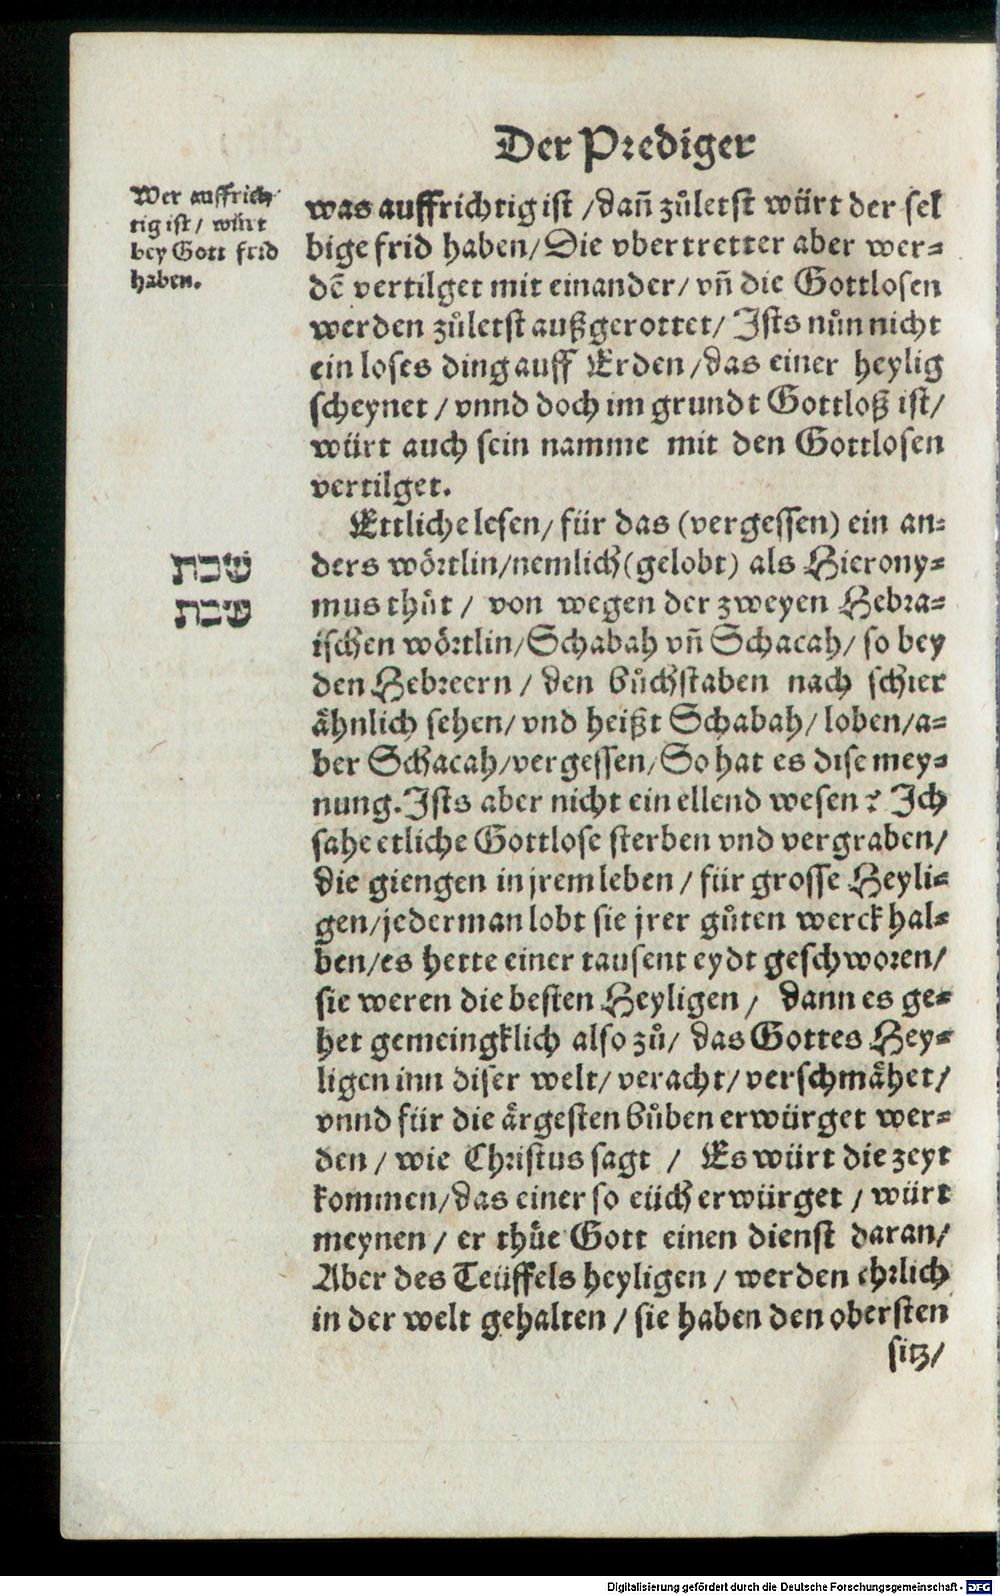 Der Prediger
Wer auffrich-
tig ist / würt
bey Gott frid
haben.
was auffrichtig ist / dañ zůletst würt der sel
bige frid haben / Die vbertretter aber wer-
dẽ vertilget mit einander / vñ die Gottlosen
werden zůletst außgerottet / Ists nůn nicht
ein loses ding auff Erden / das einer heylig
scheynet / vnnd doch im grundt Gottloß ist /
würt auch sein namme mit den Gottlosen
vertilget.
Ettliche lesen / für das (vergessen) ein an-
ders wörtlin / nemlich (gelobt) als Hierony-
mus thůt / von wegen der zweyen Hebra-
ischen wörtlin / Schabah vñ Schacah / so bey
den Hebreern / den bůchstaben nach schier
ähnlich sehen / vnd heißt Schabah / loben / a-
ber Schacah / vergessen / So hat es dise mey-
nung. Ists aber nicht ein ellend wesen? Ich
sahe etliche Gottlose sterben vnd vergraben /
die giengen in jrem leben / für grosse Heyli-
gen / jederman lobt sie jrer gůten werck hal-
ben / es hette einer tausent eydt geschworen /
sie weren die besten Heyligen / dann es ge-
het gemeingklich also zů / das Gottes Hey-
ligen inn diser welt / veracht / verschmähet /
vnnd für die ärgesten bůben erwürget wer-
den / wie Christus sagt / Es würt die zeyt
kommen / das einer so eüch erwürget / würt
meynen / er thüe Gott einen dienst daran /
Aber des Teüffels heyligen / werden ehrlich
in der welt gehalten / sie haben den obersten
sitz /
שכת
שבת
Digitalisierung gefördert durch die Deutsche Forschungsgemeinschaft - DFG